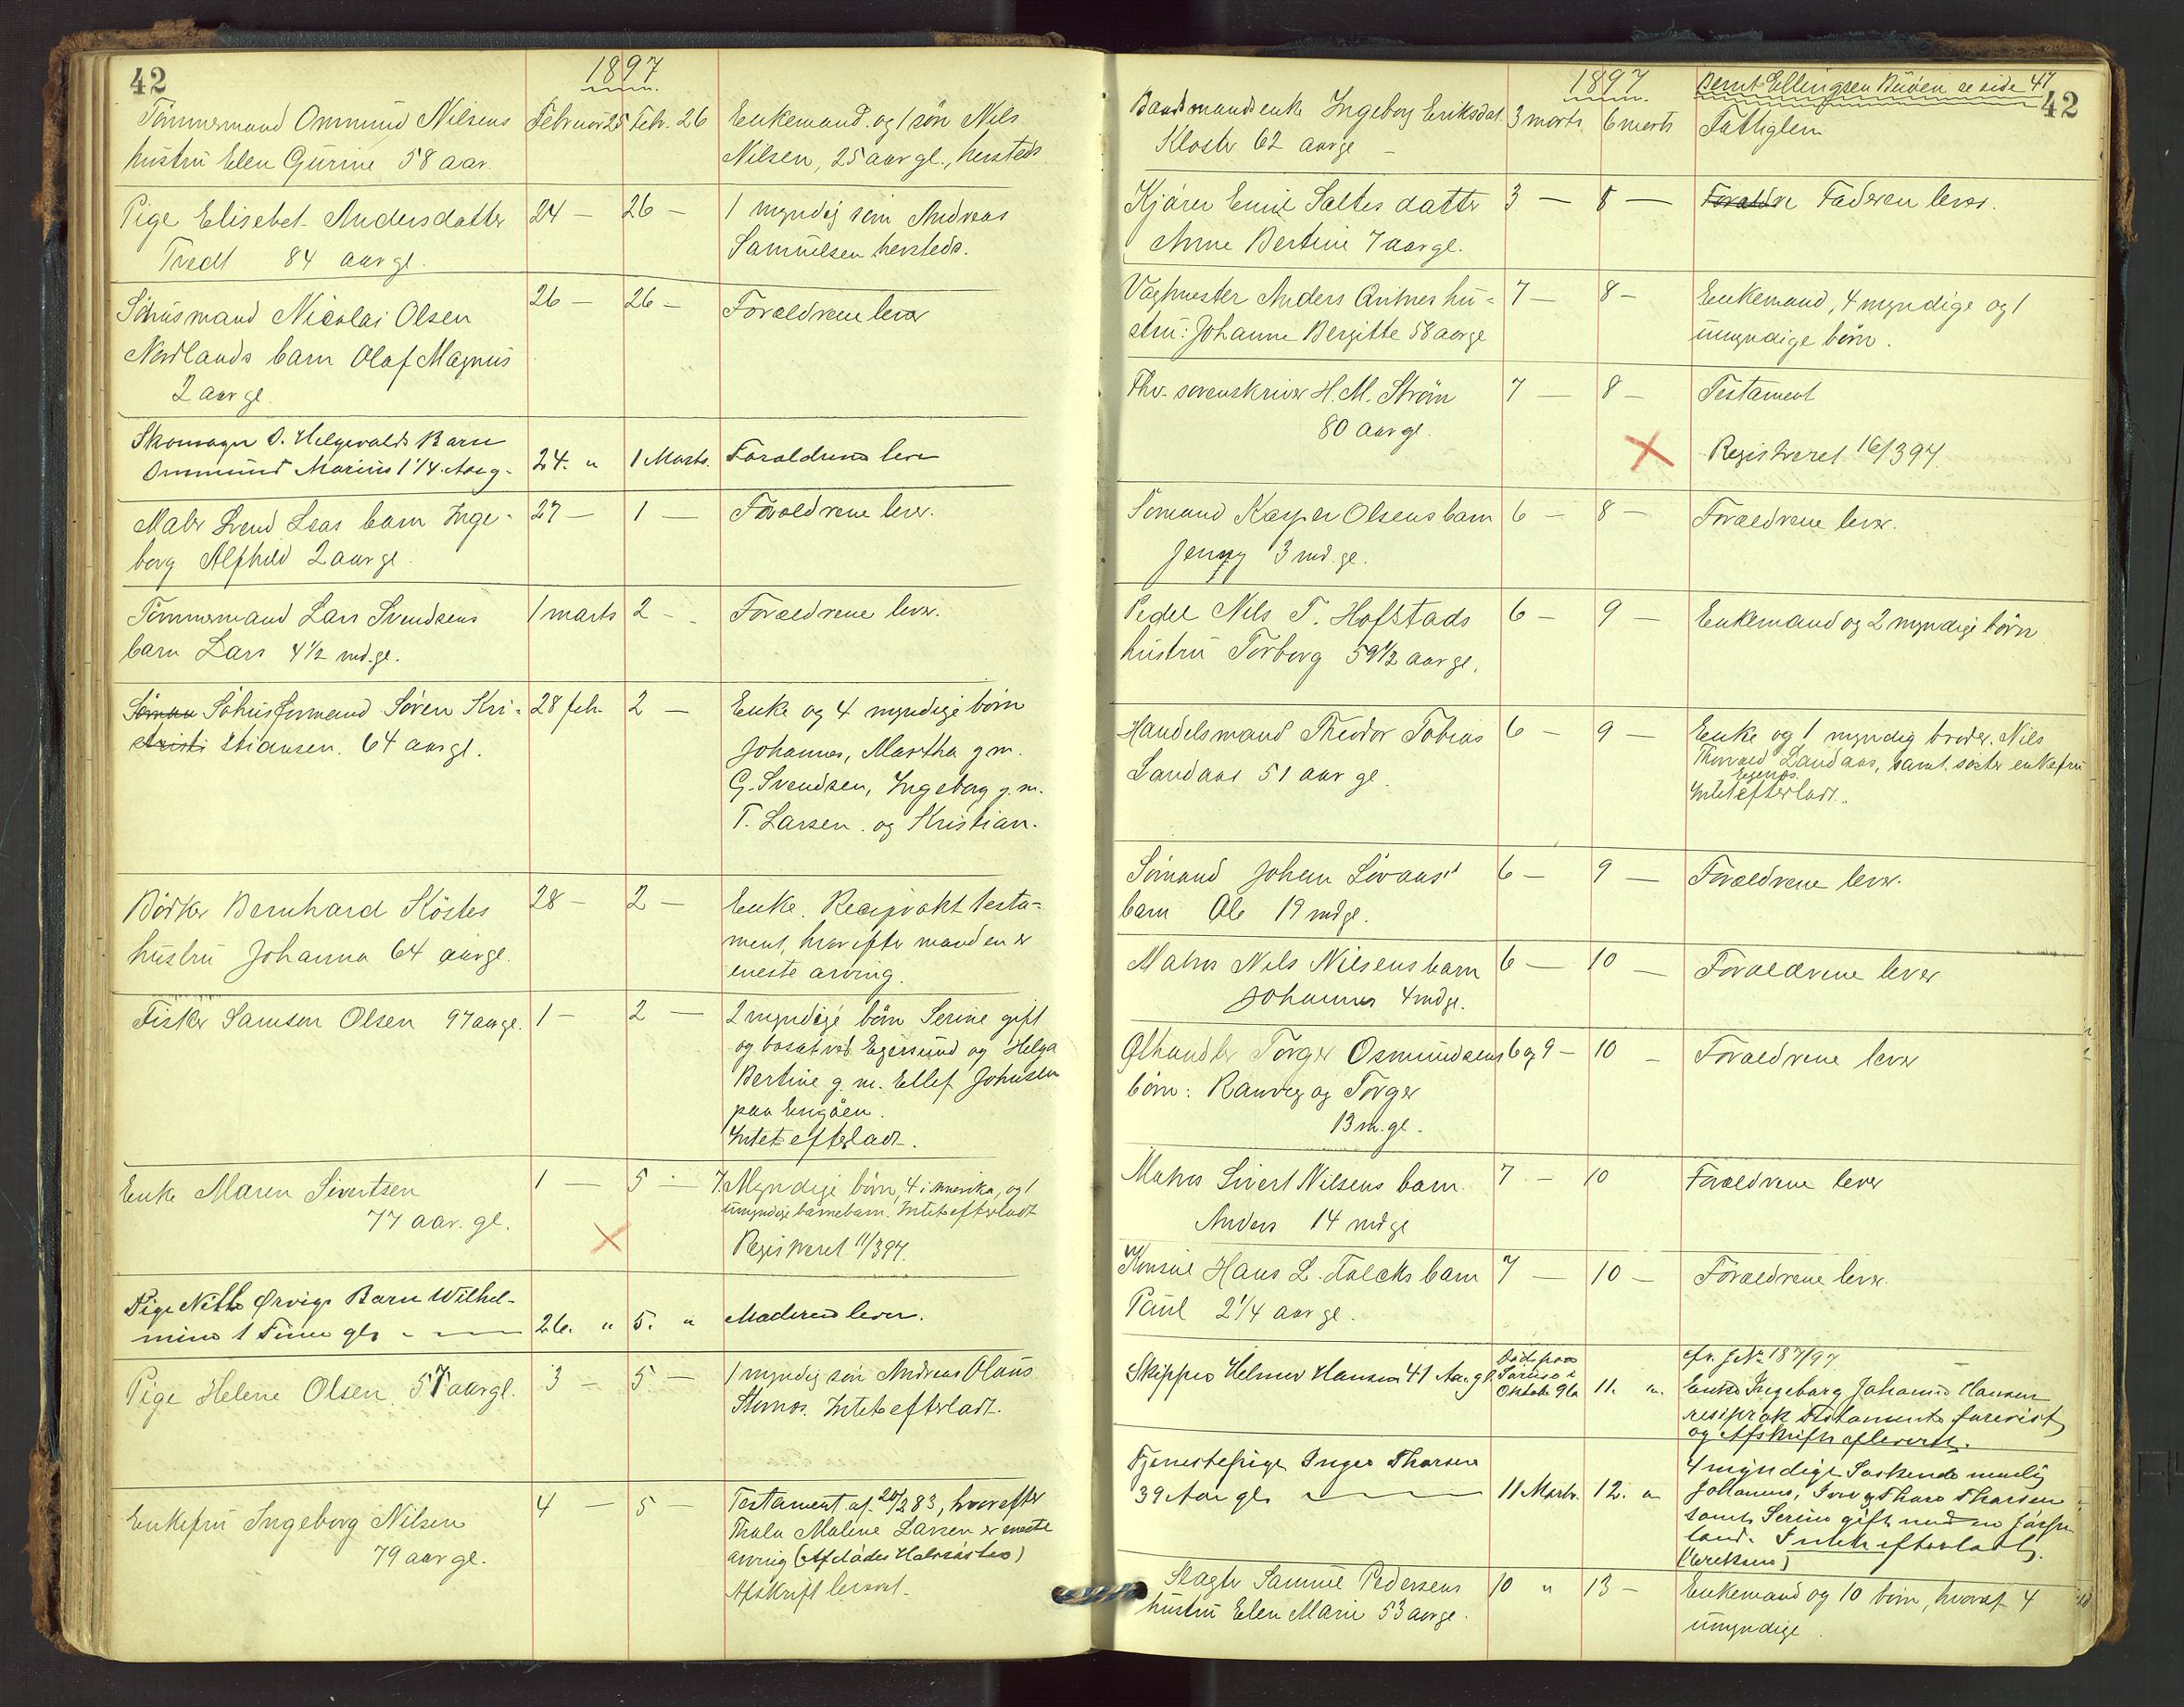 42
1897
Tömmermand Ommund Nilsens Februar 25 Febr. 26 Enkemand og 1 sön Nils
hustru Elen Gurine 58 aar. Nilsen, 25 aar gl., hersteds
Pige Elisebet Andersdatter 24 — 26 — 1 myndig sön Andreas
Tvedt 84 aar gl. Samuelsen hersteds.
Nicolai Olsen 26 — 26 — Forældrene lever
Nordlands barn Olaf Magnus
2 aar gl.
Skomager O. Helgevolds Barn
Ommund Marius 1 1/4 Aar g. 24. " 1 Marts. Forældrene lever
Maler Svend Leas barn Inge- 27 — 1 — Forældrene lever.
borg Alfhild 2 aar gl.
Tömmermand Lars Svendsens 1 marts 2 - Forældrene lever.
barn Lars 4 1/2 md. gl.
Söhusformand Sören Kri- 28 feb. 2 — Enke og 4 myndige börn
stiansen. 64 aar gl. Johannes, Martha g. m.
G. Svendsen, Ingeborg g. m.
T. Larsen og Kristian.
Bödker Bernhard Köstes 28 — 2 — Enke. Reciprokt testa-
hustru Johanna 64 aar gl. ment, hvorefter manden er
eneste arving.
Fisker Samson Olsen 97 aar gl. 1 — 2 — 2 myndige börn Serine gift
og bosat ved Egersund og Helga
Bertine g. m. Ellef Johnsen
paa Engöen.
Intet efterladt.
Enke Maren Sivertsen 1 — 5 — 7 Myndige börn, 4 i Amerika, og 1
77 aar gl. umyndige barnebarn. Intet efterladt
Registreret 11/3 97.
Pige Örvigs Barn Wilhel-
mine 1 Time gl. 26. " 5. " Moderen lever.
Pige Helene Olsen 57 aar gl. 3 — 5 — 1 myndig sön Andreas Olaus
Intet efterladt.
Enkefru Ingeborg Nilsen 4 — 5 — Testament af 20/2 83, hvorefter
79 aar gl. Thala Malene Larsen er eneste
arving
Afskrift leveret.
1897 Bernt Ellingsen se side 41
42
enke Ingeborg Eriksdat. 3 marts 6 marts Fattiglem
Kloster 62 aar gl —
Kjörer Emil Saltes datter 3 — 8 — Forældre Faderen lever.
Anne Bertine 7 aar gl.
Vagtmester Anders hu- 7 — 8 — Enkemand, 4 myndige og 1
stru: Johanne Bergitte 58 aar gl umyndige börn.
Fhv. sorenskriver H. M. Ström 7 — 8 — Testament
80 aar gl. Registreret 16/3 97.
Sömand Kasper Olsens barn 6 — 8 — Forældrene lever.
Jenny 3 md. gl.
Pedel Nils T. Hofstads 6 — 9 — Enkemand og 2 myndige börn
hustru Torborg 59 1/2 aar gl.
Handelsmand Theodor Tobias 6 — 9 — Enke og 1 myndig broder Nils
Landaas 51 aar gl. Thorvald Landaas, samt söster enkefru
Intet efterladt.
Sömand Johan Lövaas's 6 — 9 — Forældrene lever.
barn Ole 19 md gl.
Matros Nils Nilsens barn 6 — 10 — Forældrene lever
Johannes 4 md gl.
Ølhandler Torger Osmundsens 6 og 9 — 10 — Forældrene lever
börn: Ranveig og Torger
13 m. gl.
Matros Sivert Nilsens barn 7 — 10 Forældrene lever
Anders 14 md gl
Konsul Hans L. Falcks barn 7 — 10 — Forældrene lever.
Paul 2 1/4 aar gl.
cfr. J. No 187/97
Skipper Helmer Hansen 41 Aar gl. Oktober 96 11. " Enke Ingeborg Johanne Hansen
resiprok Testamente forevist
og Afskrift afleveret.
Tjenestepige Inger Thorsen 4 myndige Söskende nemlig
39 Aar gl. 11 Marts 12. " Johannes, Iver og Thore Thorsen
samt Serine gift med en
Intet efterladt.
(Eriksen)
Slagter Samuel Pedersens 10 " 13 — Enkemand og 10 börn, hvoraf 4
hustru Elen Marie 53 aar gl. umyndige